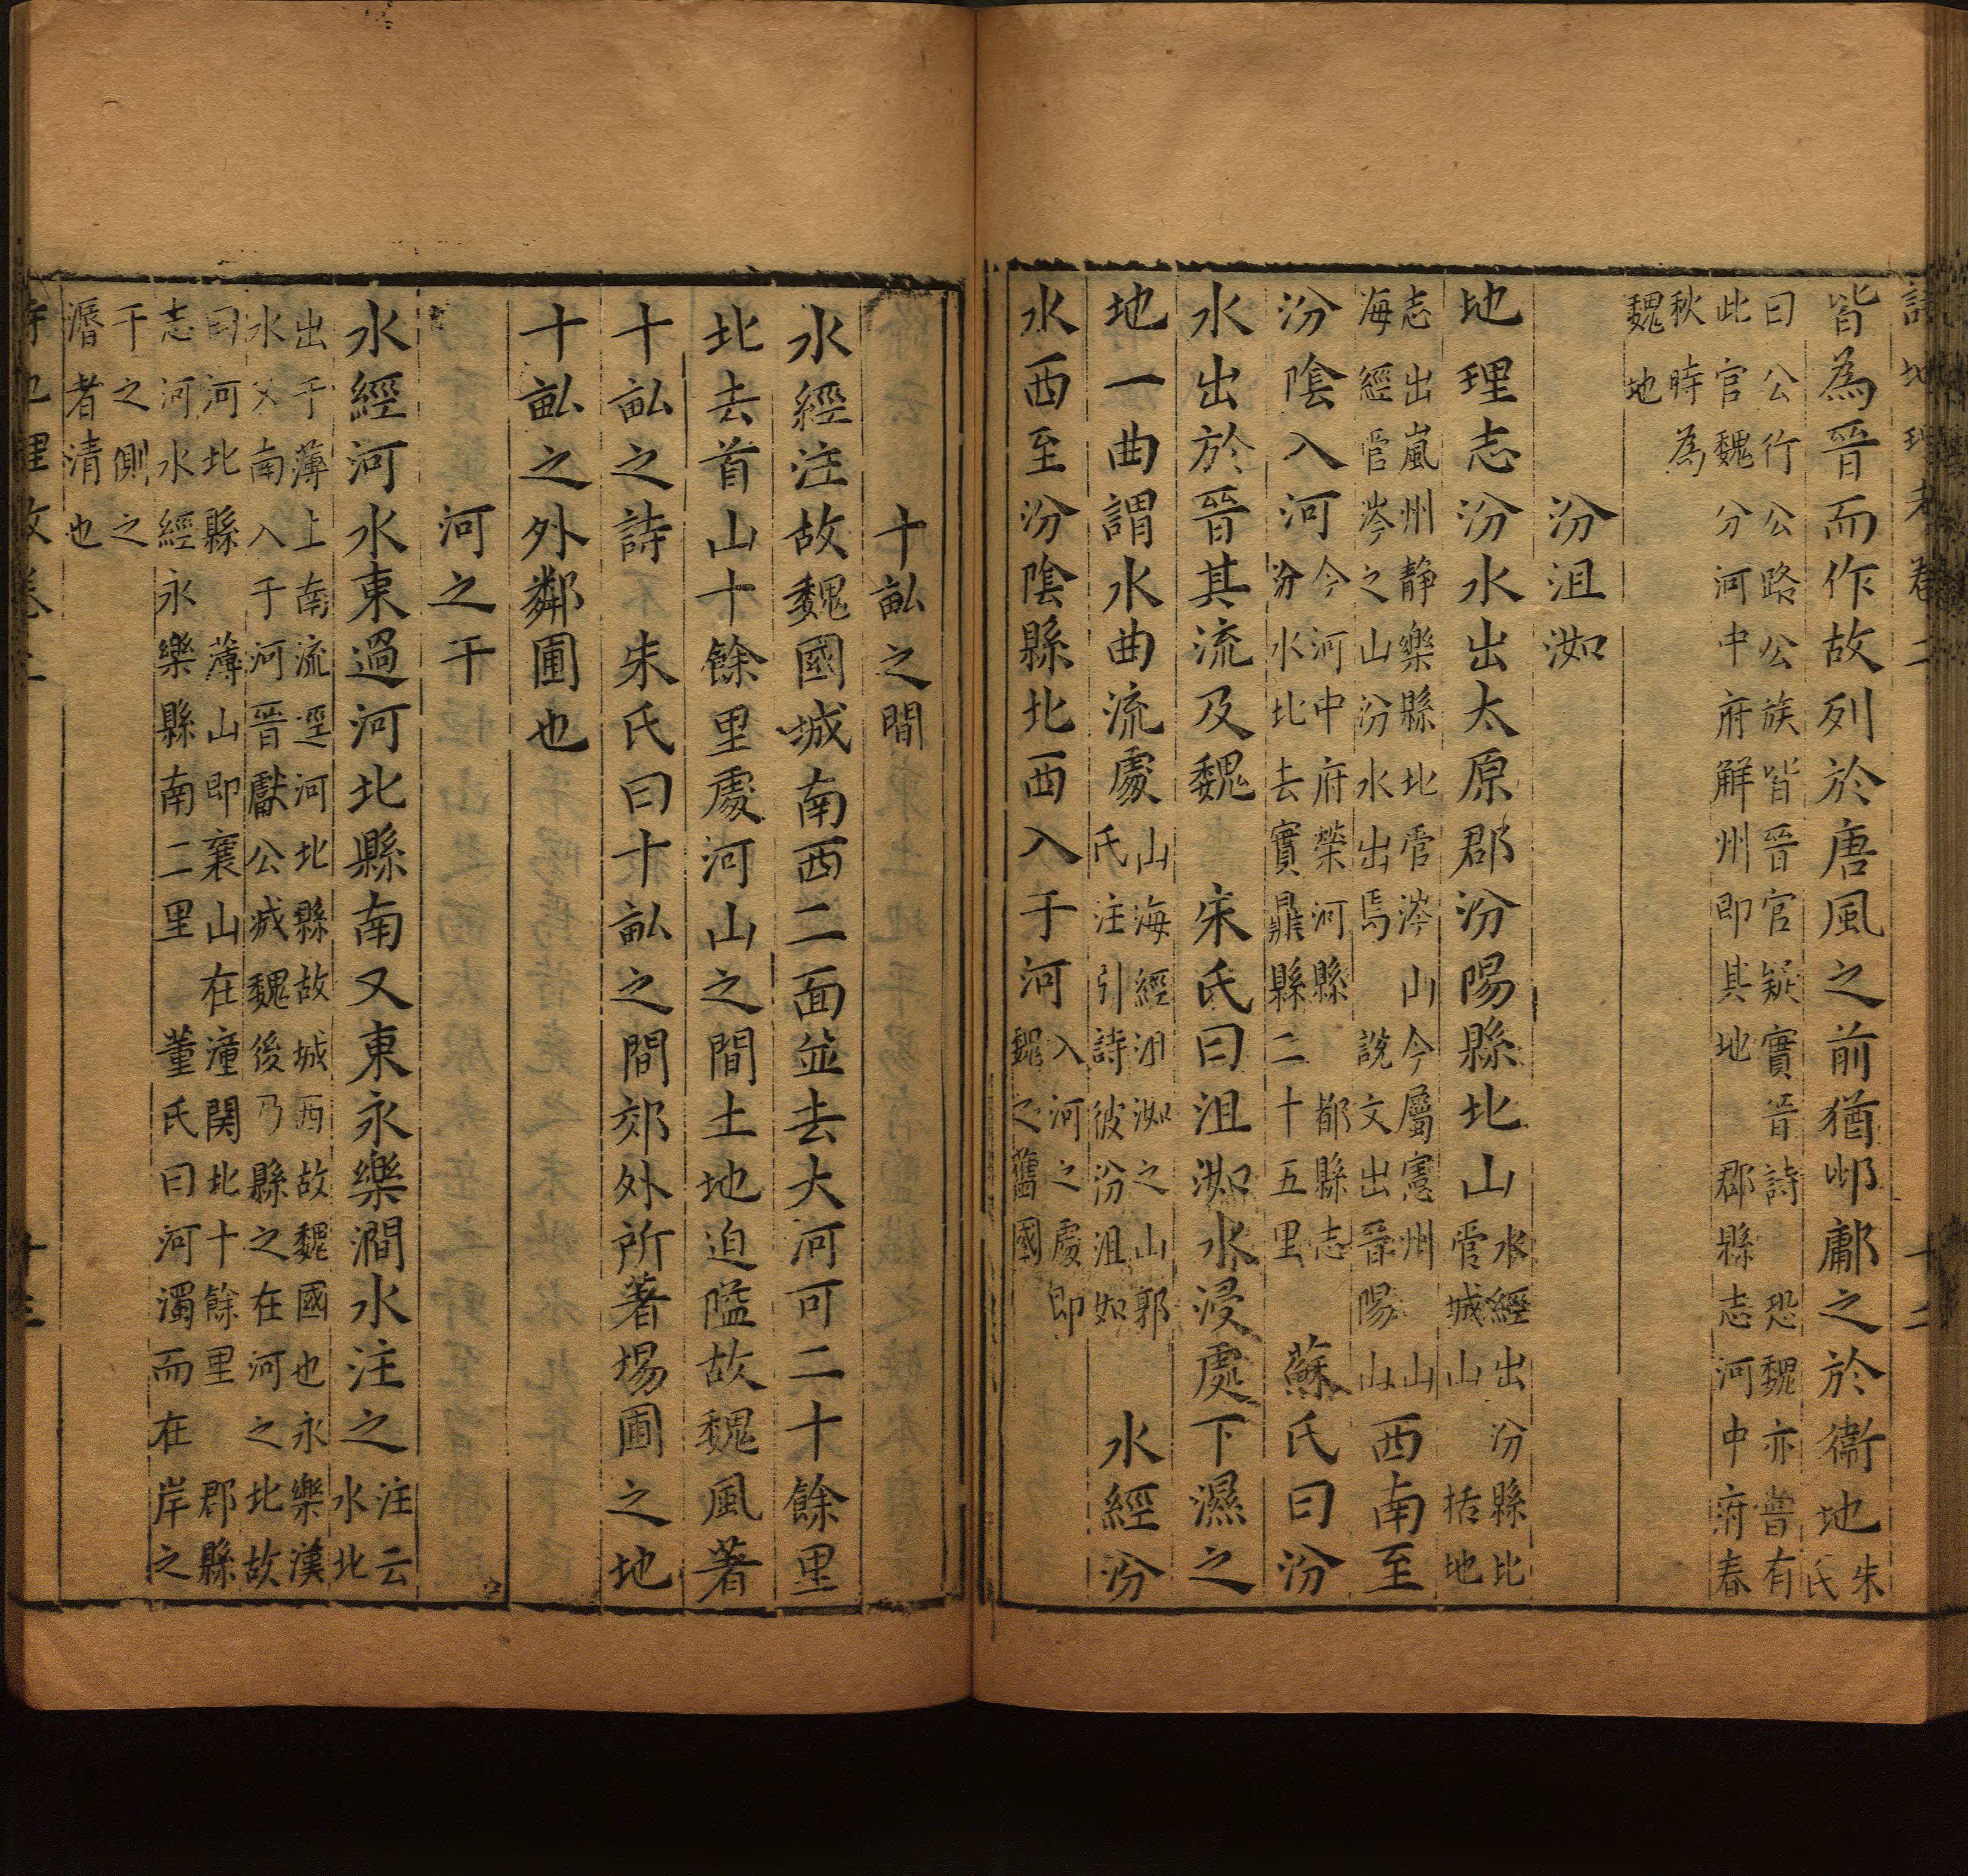 詩地理考卷二 十二
皆為晉而作故列於唐風之前猶邶鄘之於衞地朱氏
曰公行公路公族皆晉官疑實晉詩恐魏亦嘗有
此官魏分河中府解州即其地 郡縣志河中府春
秋時為
魏地
汾沮洳
地理志汾水出太原郡汾陽縣北山水經出汾縣比管城山 括地
志出嵐州静樂縣北管涔山今屬憲州 山海經管涔之山汾水出焉 說文出晉陽山西南至
汾陰入河今河中府榮河縣 郡縣志汾水北去實鼎縣二十五里 蘇氏曰汾
水出於晉其流及魏 朱氏曰沮洳水浸處下濕之
地一曲謂水曲流處山海經沮洳之山郭氏注引詩彼汾沮如 水經汾
水西至汾陰縣北西入于河入河之處即魏之舊國
十畆之間
水經注故魏國城南西二面並去大河可二十餘里
北去首山十餘里處河山之間土地迫隘故魏風著
十畆之詩 朱氏曰十畆之間郊外所著場圃之地
十畆之外鄰圃也
河之干
水經河水東過河北縣南又東永樂澗水注之注云水北
出于薄上南流逕河北縣故城西故魏國也永樂漢
水又南入于河晉獻公滅魏後乃縣之在河之北故
曰河北縣 薄山即襄山在潼関北十餘里 郡縣
志河水經永樂縣南二里 董氏曰河濁而在岸之
干之側之
漘者清也
詩地理考卷二 十三